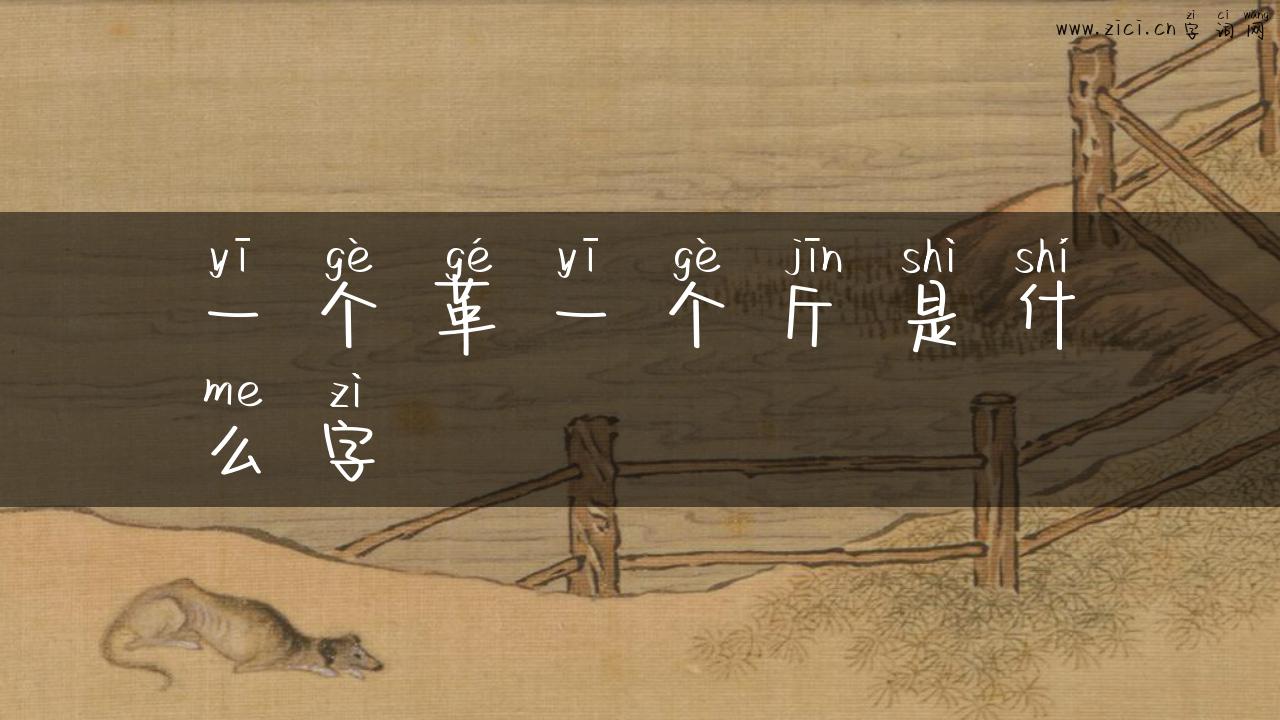 zì cí wǎng
www.zici.cn 字词网
yī gè gé yī gè jīn shì shí
一个革一个斤是什
me zì
么字